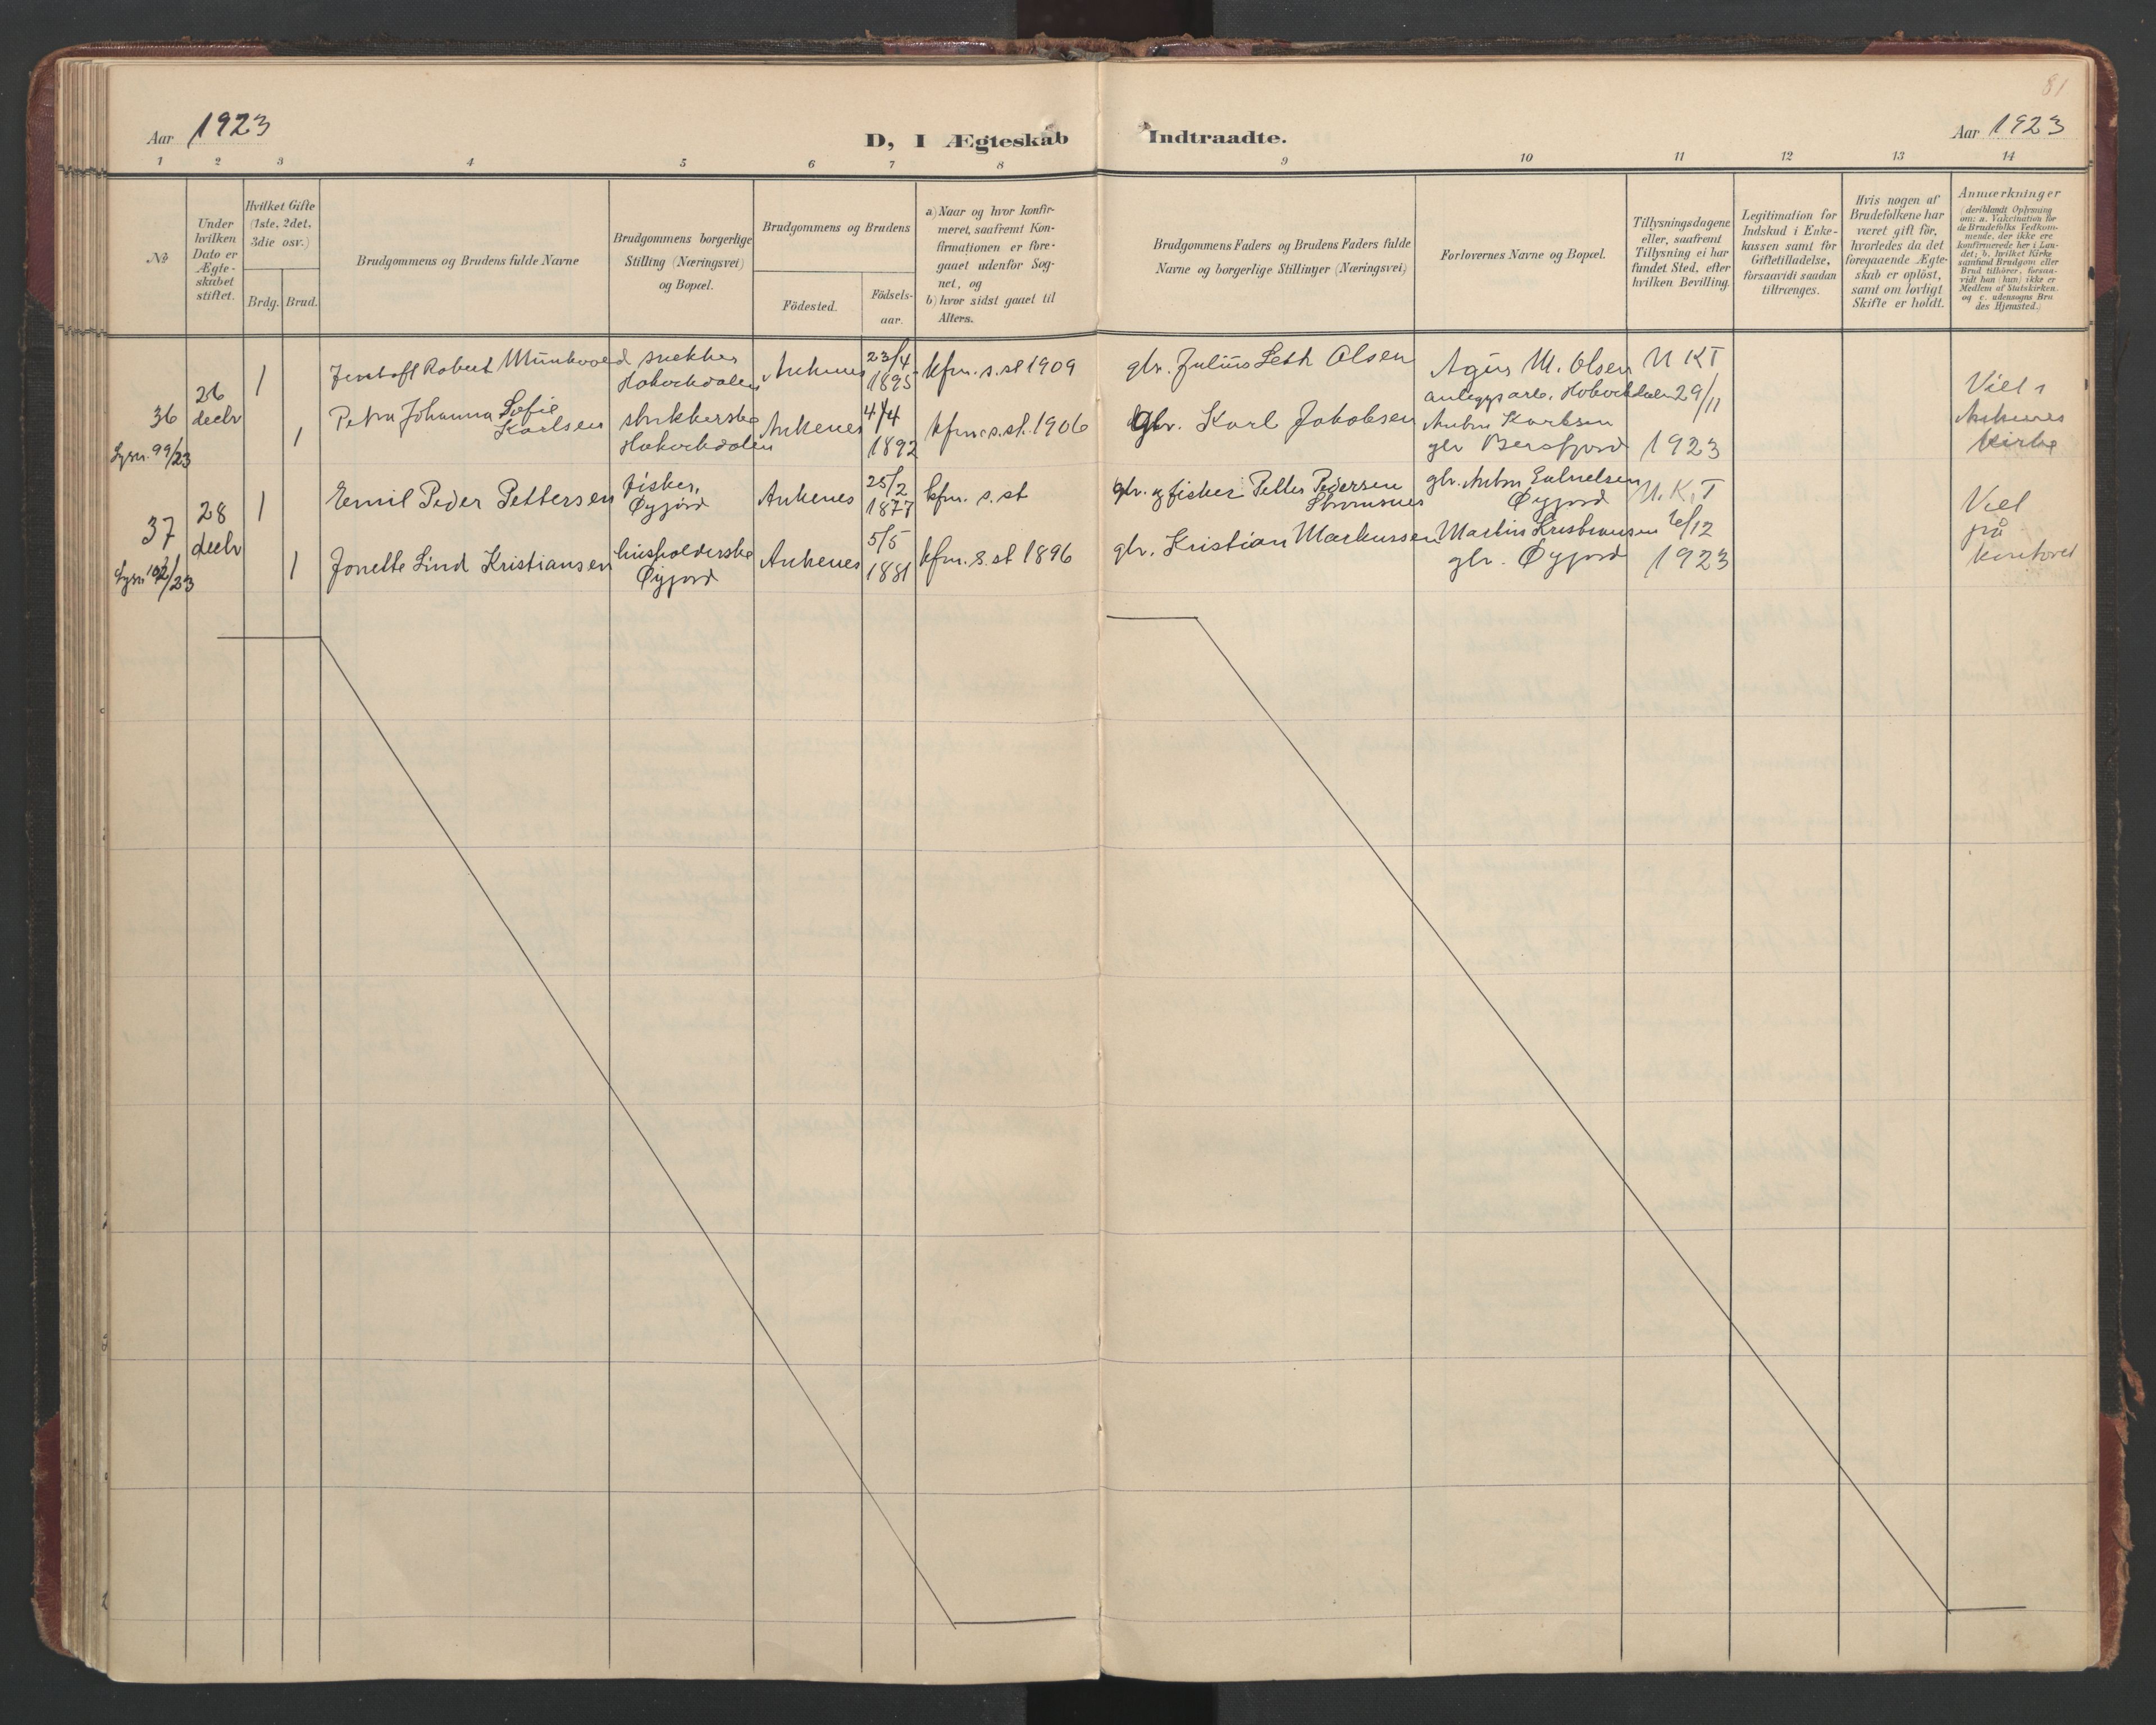 81
Aar 1923
D, I Ægteskab Indtraadte.
Aar 1923
1 2 3 4 5 6 7 8 9 10 11 12 13 14
No
Under
hvilken
Dato er
Ægte-
skabet
stiftet.
Hvilket Gifte
(1ste, 2det,
3die osv.)
Brdg. Brud.
Brudgommens og Brudens fulde Navne
Brudgommens borgerlige
Stilling (Næringsvei)
og Bopæl.
Brudgommens og Brudens
Födested.
Födsels-
aar.
a) Naar og hvor konfir-
meret, saafremt Kon-
firmationen er fore-
gaaet udenfor Sog-
net, og
b) hvor sidst gaaet til
Alters.
Brudgommens Faders og Brudens Faders fulde
Navne og borgerlige Stillinger (Næringsvei)
Forlovernes Navne og Bopæl.
Tillysningsdagene
eller, saafremt
Tillysning ei har
fundet Sted, efter
hvilken Bevilling.
Legitimation for
Indskud i Enke-
kassen samt for
Giftetilladelse,
forsaavidt saadan
tiltrænges.
Hvis nogen af
Brudefolkene har
været gift för,
hvorledes da det
foregaaende Ægte-
skab er oplöst,
samt om lovligt
Skifte er holdt.
Anmærkninger
(deriblandt Oplysning
om: a. Vakcination for
de Brudefolks Vedkom-
mende, der ikke ere
konfirmerede her i Lan-
det; b. hvilket Kirke
samfund Brudgom eller
Brud tilhörer, forsaa-
vidt han (hun) ikke er
Medlem af Statskirken.
og c. udensogns Bru
des Hjemsted.)
36
Lysn. 99/23
26
decbr
1
Robert
snekker
Ankenes
23/4
1895
kfm. s. st 1909
gbr. Julius Leth Olsen
M. Olsen
anleggsarb.
N K T
29/11
1923
Viet i
Ankenes
kirke
1
Petra Johanna Sofie
Karlsen
Ankenes
4/4
1892
kfm. s. st. 1906
Gbr. Karl Jakobsen
Anton Karlsen
gbr
37
Lysn 102/23
28
decbr
1
Emil Peder Pettersen
fisker,
Øyjord
Ankenes
25/2
1877
kfm. s. st
gbr. og fisker Petter Pedersen
Strømsnes
gbr. Anton
Øyjord
N. K. T
6/12
1923
Viet
på
kontoret
1
Jonette Lind Kristiansen
husholderske
Øyjord
Ankenes
5/5
1881
kfm. s. st 1896
gbr. Kristian Markussen
Martin Kristiansen
gbr. Øyjord